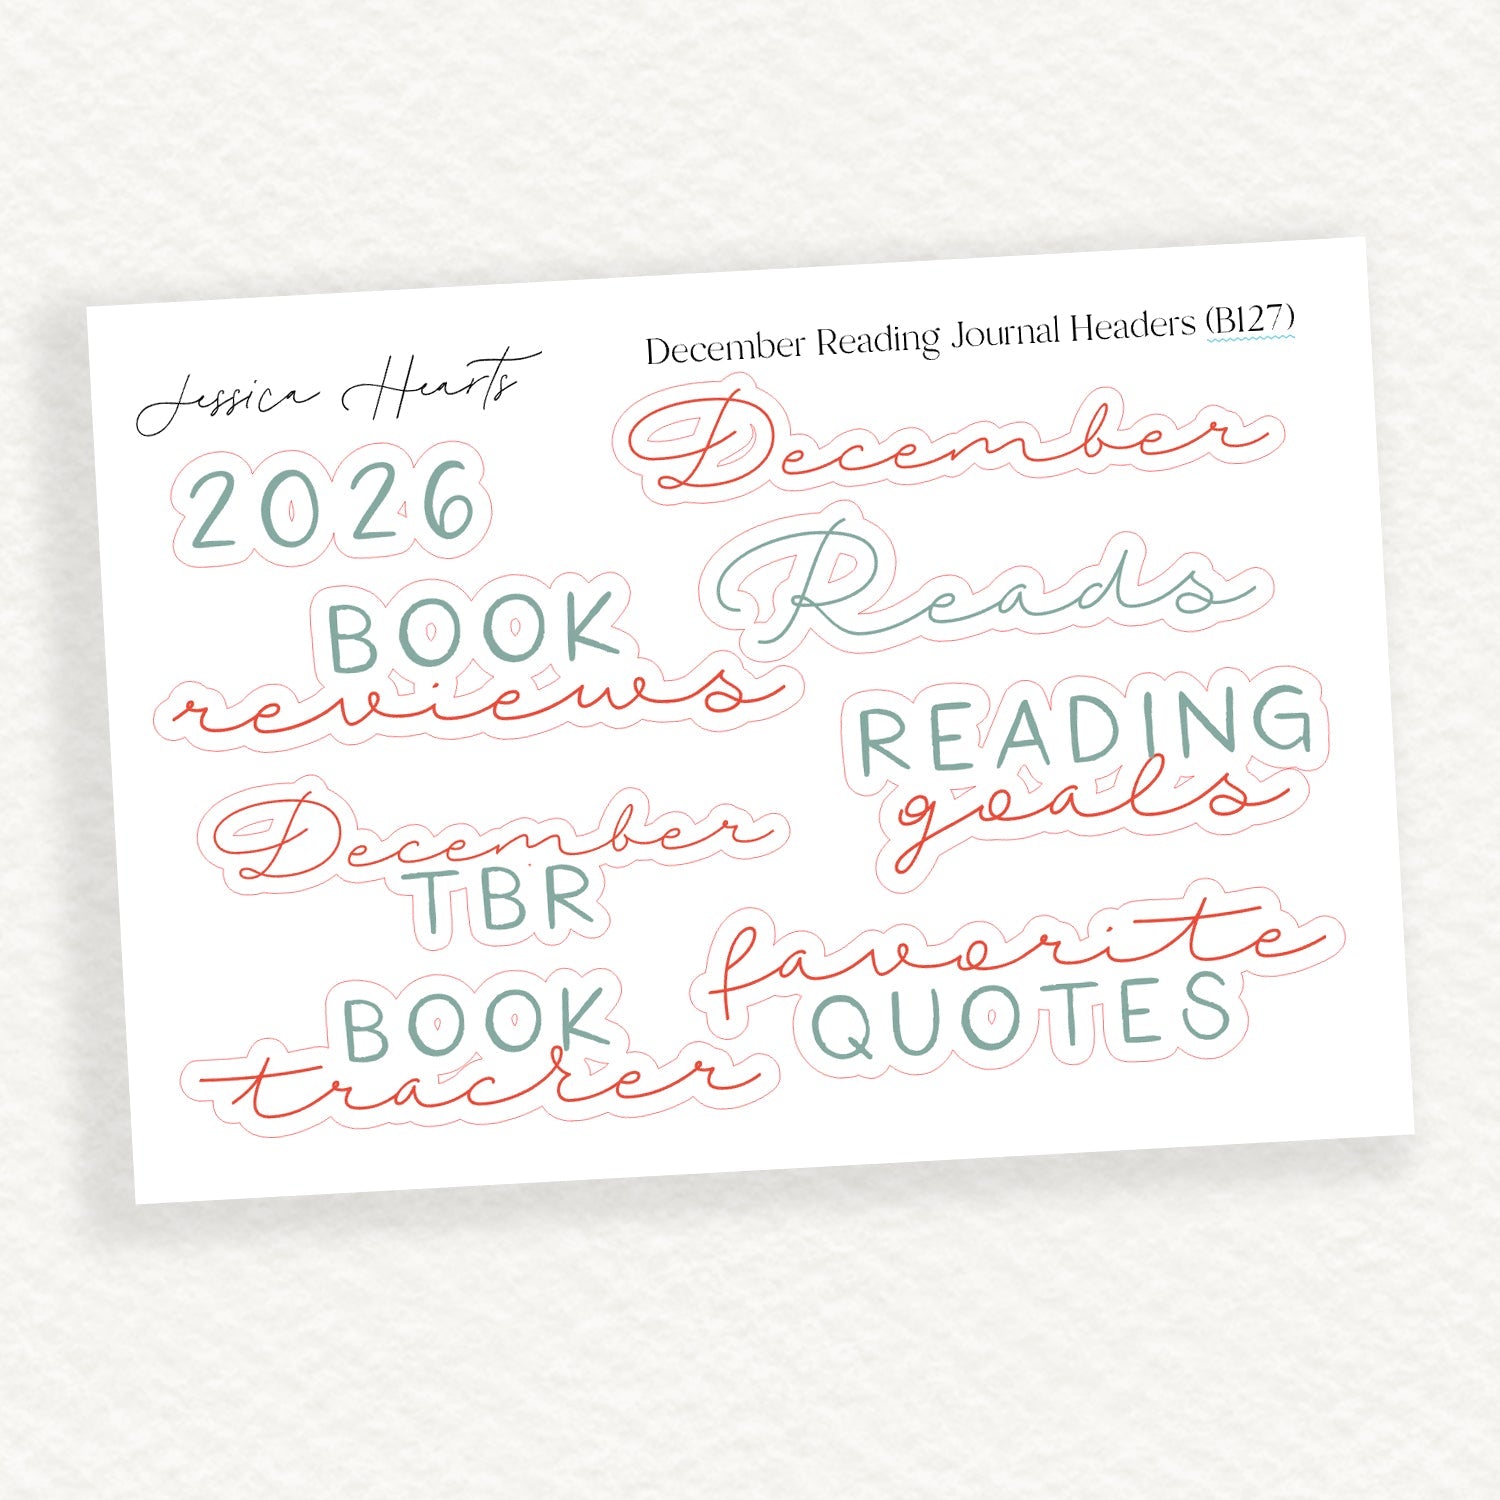 Jessica Hearts
December Reading Journal Headers (B127)
2026
December
Reads
BOOK
reviews
READING
goals
December
TBR
favorite
QUOTES
BOOK
tracker